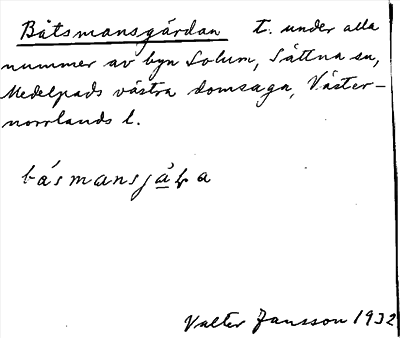 Båtsmansgårdan t. under alla
nummer av byn Solum, Sättna sn,
Medelpads västra domsaga, Väster-
norrlands l.
Valter Jansson 1932